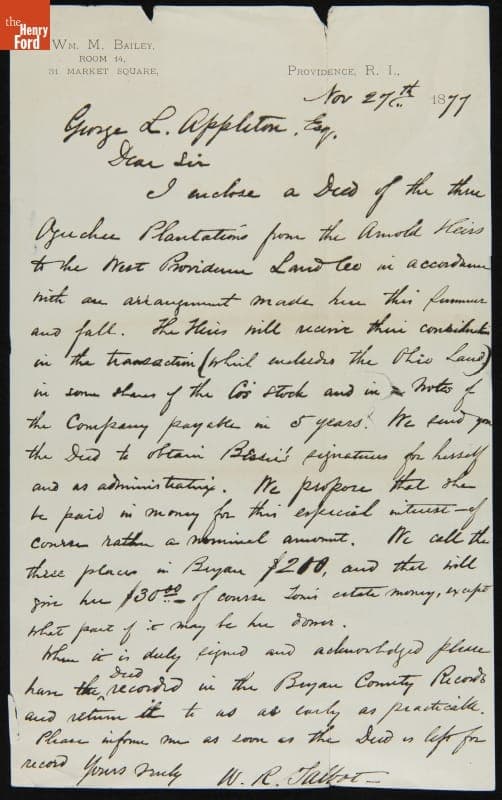 the
Henry
Ford
Wm. M. Bailey,
ROOM 14,
31 MARKET SQUARE,
PROVIDENCE, R. I.,
Nov 27th 1877
George L. Appleton, Esq.
Dear Sir
I enclose a Deed of the three
Ogechee Plantations from the Arnold Heirs
to the West Providence Land Co in accordance
with an arrangement made here this Summer
and fall. The Heirs will receive their consideration
in the transaction (which includes the Ohio Land)
in some shares of the Co's Stock and in Notes of
the Company payable in 5 years. We send you
the Deed to obtain Bessie's signatures for herself
and as administratrix. We propose that she
be paid in money for this especial interest - of
course rather a nominal amount. We call the
three places in Bryan $200, and that will
give her $30.00 - of course Tom's estate money, except
what part of it may be her dower.
When it is duly signed and acknowledged please
have the Deed recorded in the Bryan County Records
and return it to us as early as practicable.
Please inform me as soon as the Deed is left for
record Yours truly W. R. Talbot